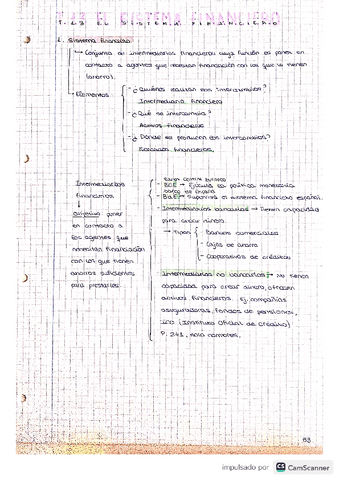 T.13 EL SISTEMA FINANCIERO
1. Sistema financiero
Conjunto de intermediarios financieros cuya función es poner en
contacto a agentes que necesitan financiación con los que la tienen
(ahorro).
Elementos
- ¿Quiénes realizan los intercambios?
Intermediarios financieros
- ¿Qué se intercambia?
Activos financieros
- ¿Dónde se producen los intercambios?
Mercados financieros.
Intermediarios
financieros
objetivo: poner
en contacto a
los agentes que
necesitan financiación
con los que tienen
ahorros suficientes
para prestarlos
banco central europeo
- BCE → Ejecuta la política monetaria
banco de España
- BdE → Supervisa el sistema financiero español.
- Intermediarios bancarios → Tienen capacidad
para crear dinero.
→ Tipos
Bancos comerciales
Cajas de ahorro
Cooperativas de créditos
Intermediarios no bancarios → No tienen
capacidad para crear dinero, ofrecen
activos financieros. Ej. compañías
aseguradoras, fondos de pensiones,
ICO (Instituto Oficial de Crédito)
P. 241,
63
impulsado por CS CamScanner